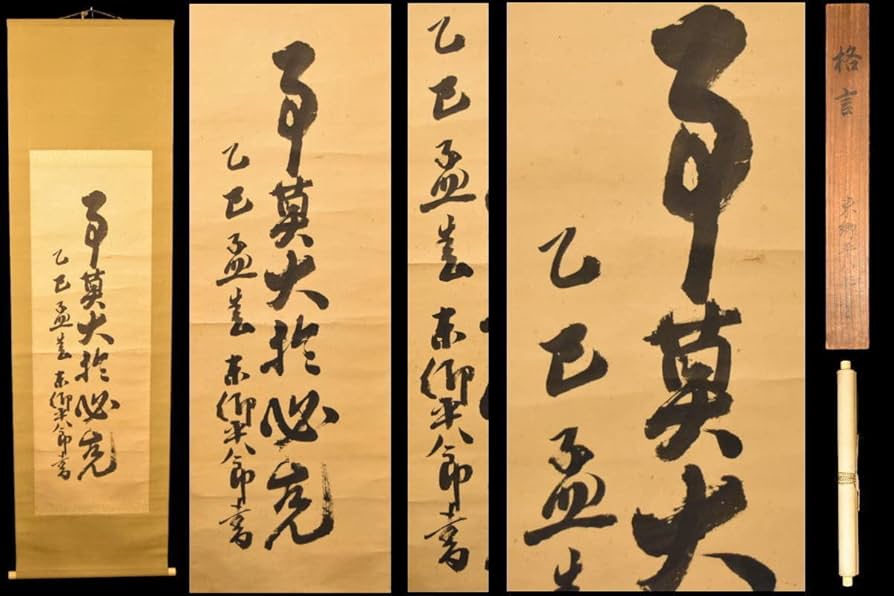 事莫大於必克
乙巳孟春 東郷平八郎書
事莫大於必克
乙巳孟春 東郷平八郎書
乙巳孟春 東郷平八郎書
事莫大
乙巳孟春
格言
東郷平